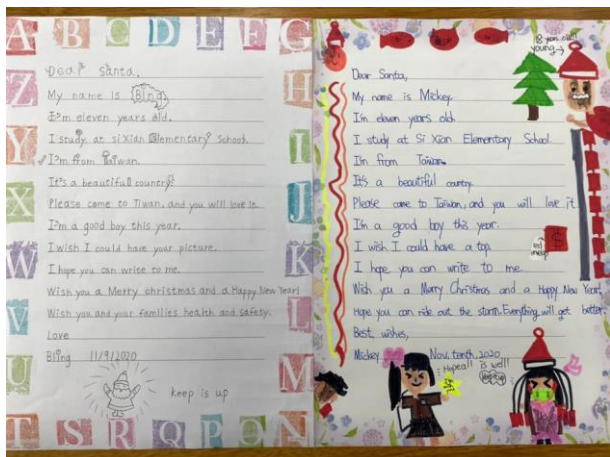 A B C D E F G
H
I
J
K
L
M
N
O
P
Q
R
S
T
U
V
W
X
Y
Z
Dear Santa,
My name is Bling
I'm eleven years old.
I study at sixian Elementary School.
I'm from Taiwan.
It's a beautiful country.
Please come to Tiwan, and you will love it.
I'm a good boy this year.
I wish I could have your picture.
I hope you can write to me.
Wish you a Merry christmas and a Happy New Year!
Wish you and your families health and safety.
Love
Bling 11/9/2020
keep is up
young
Dear Santa,
My name is Mickey.
I'm eleven years old.
I study at Si Xian Elementary School.
I'm from Taiwan.
It's a beautiful country.
Please come to Taiwan, and you will love it.
I'm a good boy this year.
I wish I could have a top.
I hope you can write to me.
Wish you a Marry Christmas and a Happy New Year,
Hope you can ride out the storm. Everything will get better.
Best, wishes,
Mickey Nov, tenth, 2020
Hope all is well